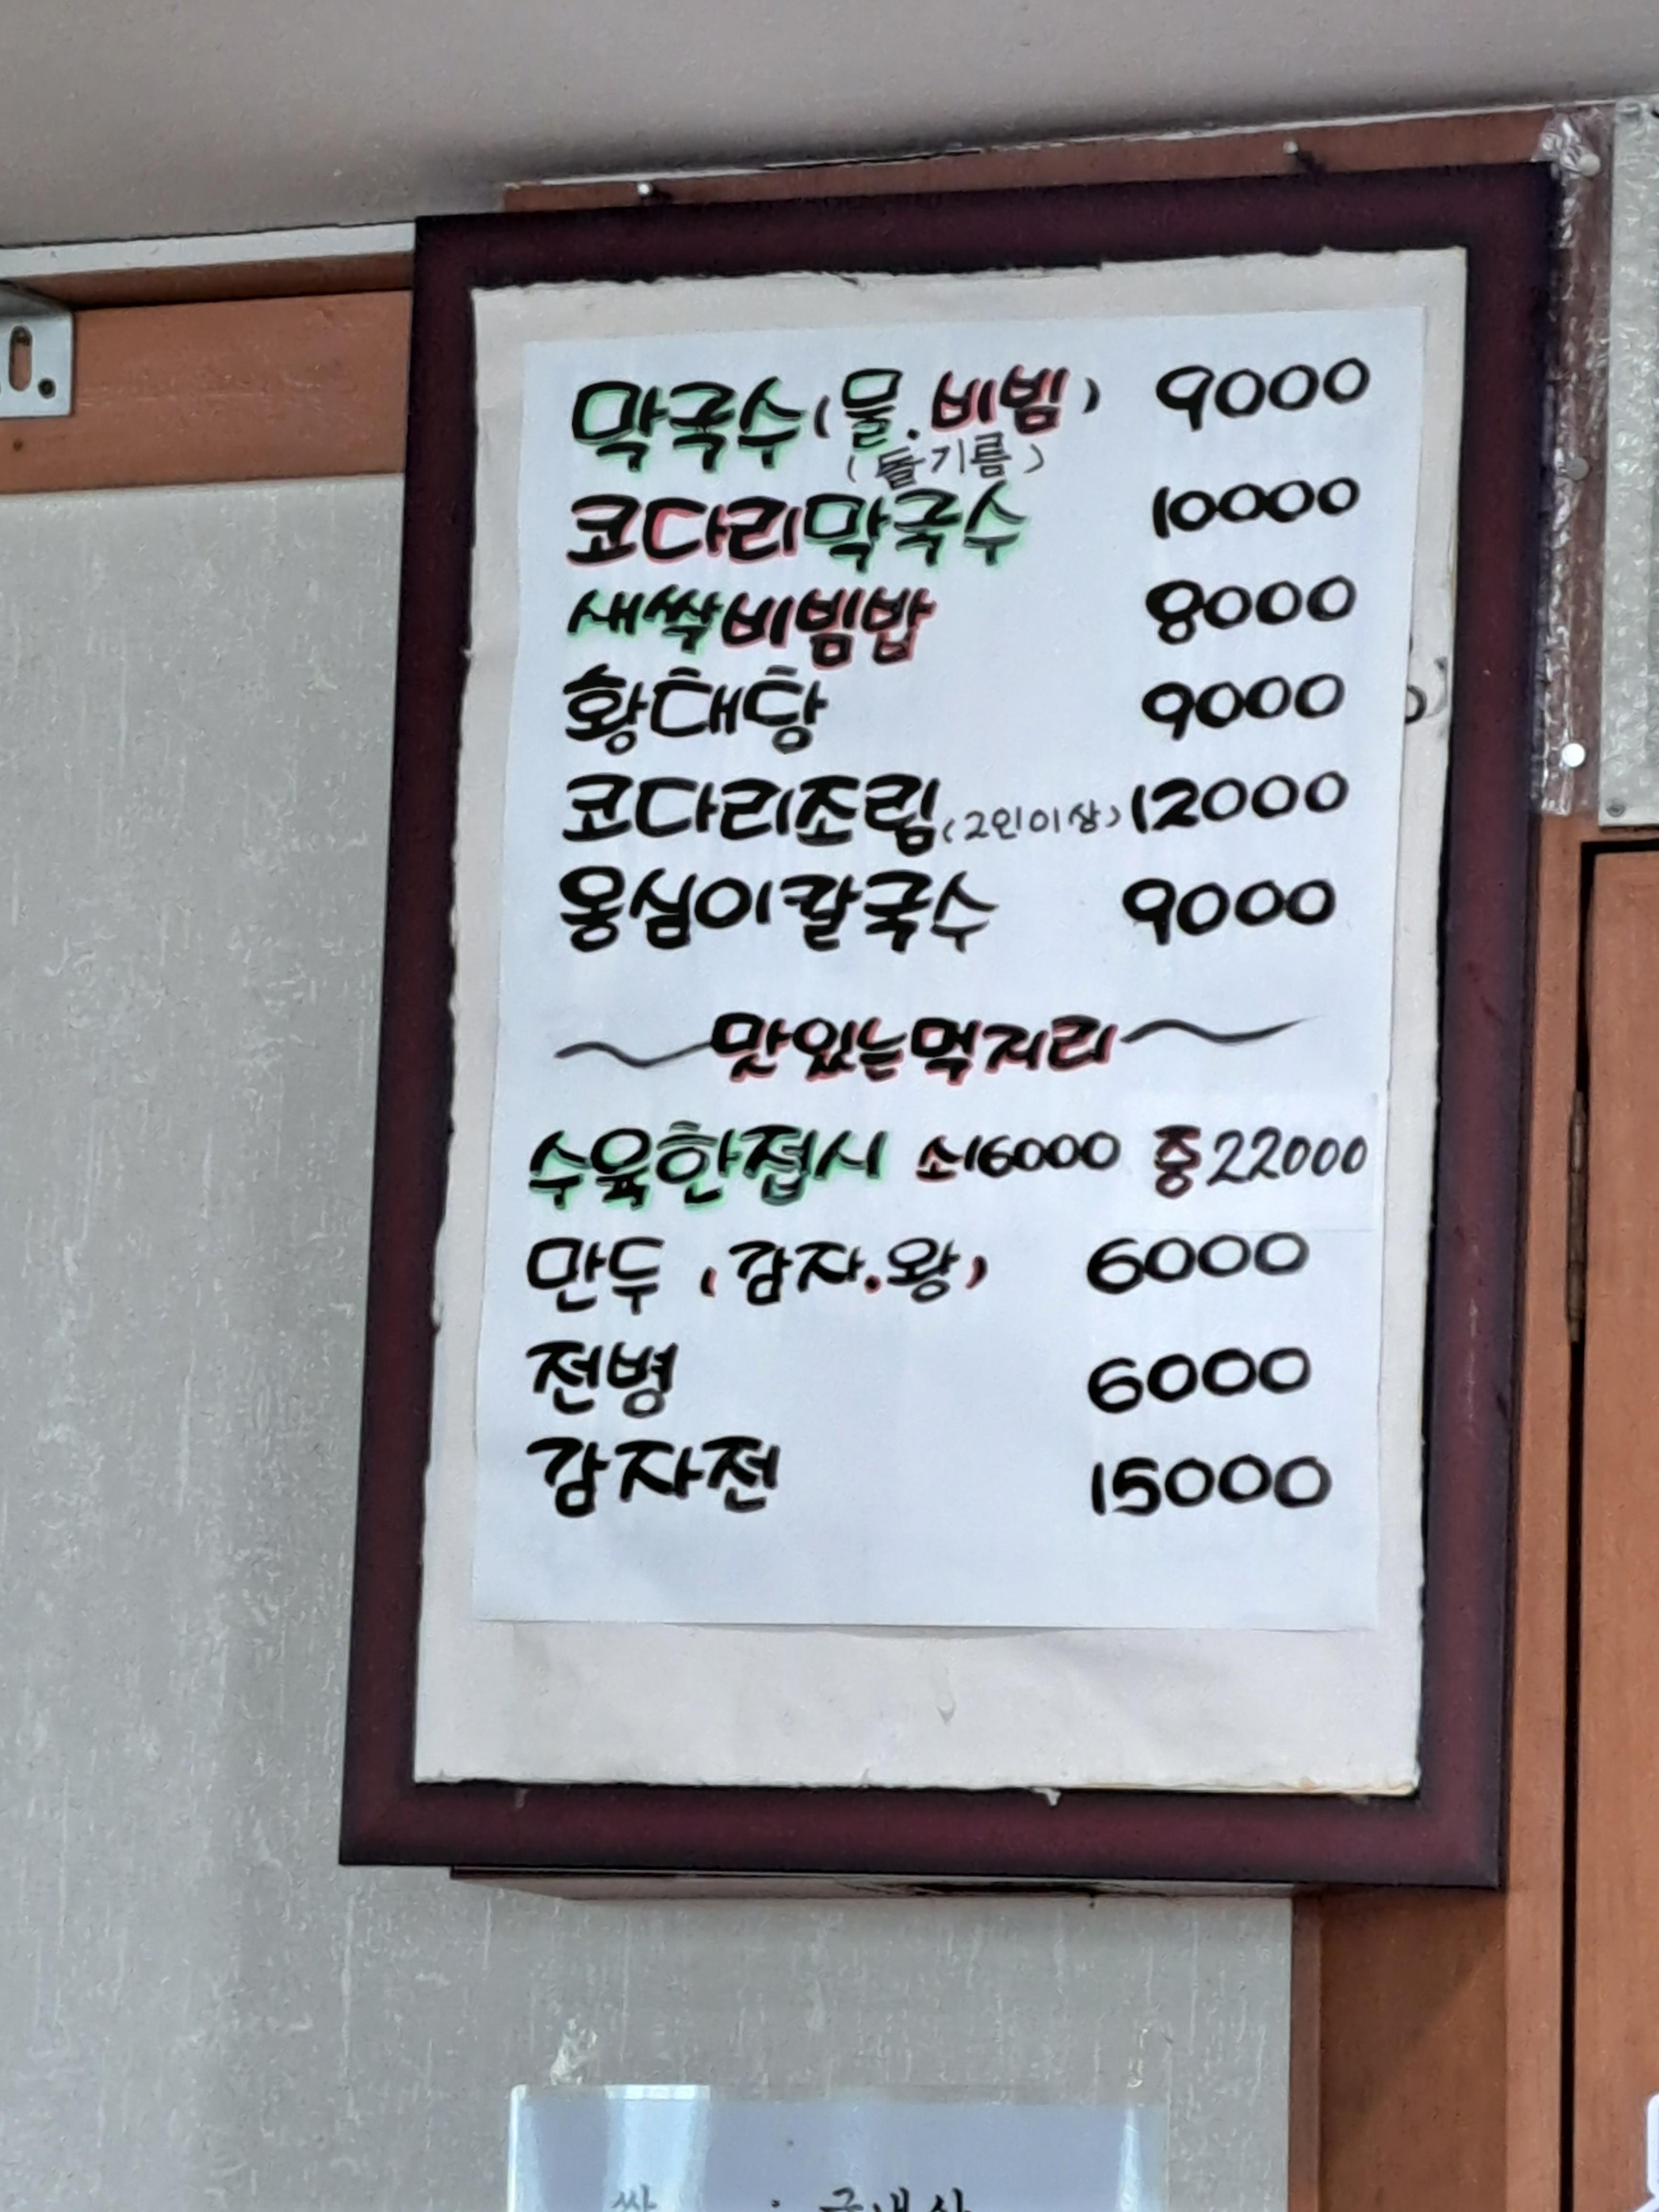 막국수(물.비빔) 9000
(들기름)
코다리막국수 10000
새싹비빔밥 8000
황태탕 9000
코다리조림(2인이상) 12000
옹심이칼국수 9000
맛있는먹거리
수육한접시 소16000 중22000
만두 (감자.왕) 6000
전병 6000
감자전 15000
쌀 : 국내산